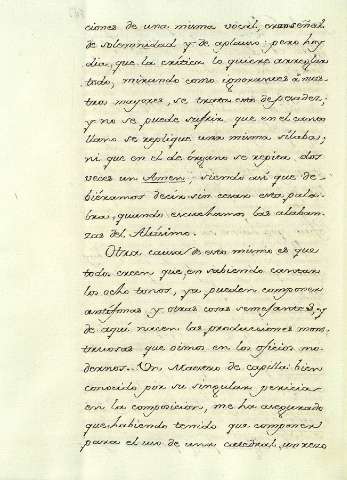 ciones de una misma vocal, era señal
de solemnidad y de aplauso: pero hoy
dia, que la critica lo quiere arreglar
todo, mirando como ignorantes à nues-
tros mayores, se trata esto de pesadez;
y no se puede sufrir que en el canto
llano se replique una misma silaba,
ni que en el de órgano se repita dos
veces un Amen; siendo asi que de-
biéramos decir sin cesar esta pala-
bra, quando escuchamos las alaban-
zas del Altísimo.
Otra causa de esto mismo es que
todos creen que, en sabiendo cantar
los ocho tonos, ya pueden componer
antífonas y otras cosas semejantes, y
de aquí nacen las producciones mons-
truosas que oimos en los oficios mo-
dernos. Un Maestro de capilla bien
conocido por su singular pericia
en la composicion, me ha asegurado
que habiendo tenido que componer
para el uso de una catedral, un rezo